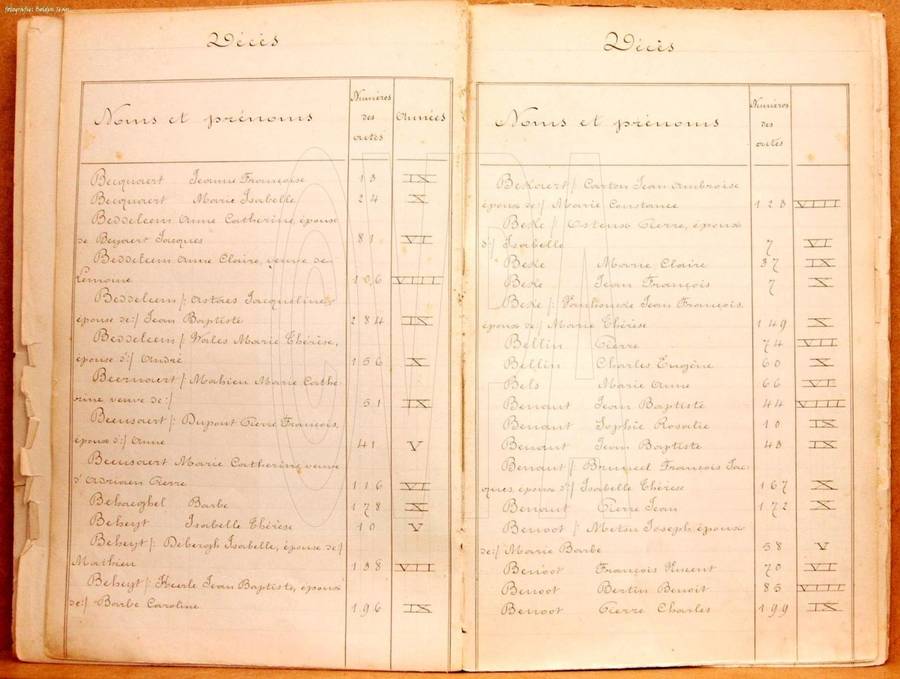 Décès
Noms et prénoms
Numéros
des
actes
Années
Becquaert Jeanne Françoise 13 IX
Becquaert Marie Isabelle 24 X
Beddeleem Anne Catherine, épouse
de Beyaert Jacques 81 VI
Beddeleem Anne Claire, veuve de
Lemoine 106 VIII
Beddeleem /: Astaes Jacqueline
épouse de:/ Jean Baptiste 284 IX
Beddeleem /: Wales Marie Thérèse,
épouse d':/ André 156 X
Beernaert /: Mahieu Marie Cathe-
rine veuve de:/ 51 IX
Beeusaert /: Dupont Pierre François,
époux d':/ Anne 41 V
Beeusaert Marie Catherine veuve
d'Adriaen Pierre 116 VI
Behaeghel Barbe 178 X
Beheyt Isabelle Thérèse 10 V
Beheyt /: Debergh Isabelle, épouse de:/
Mathieu 138 VII
Beheyt /: Keerle Jean Baptiste, époux
de:/ Barbe Caroline 196 IX
Décès
Noms et prénoms
Numéros
des
actes
Bekaert /: Carton Jean Ambroise
époux de:/ Marie Constance 123 VIII
Beke /: Ostensa Pierre, époux
d':/ Isabelle 7 VI
Beke Marie Claire 37 IX
Beke Jean François 7 X
Beke /: Jean François,
époux de:/ Marie Thérèse 149 X
Bellin Pierre 74 VII
Bellin Charles Eugène 60 X
Bels Marie Anne 66 VI
Benaut Jean Baptiste 44 VIII
Benaut Sophie Rosalie 10 IX
Benaut Jean Baptiste 43 IX
Benaut /: Bruneel François Jac-
ques, époux d':/ Isabelle Thérèse 167 X
Benaut Pierre Jean 172 X
Benoot /: Metsu Joseph, époux
de:/ Marie Barbe 58 V
Benoot François Vincent 70 VI
Benoot Bertin Benoit 85 VIII
Benoot Pierre Charles 199 IX